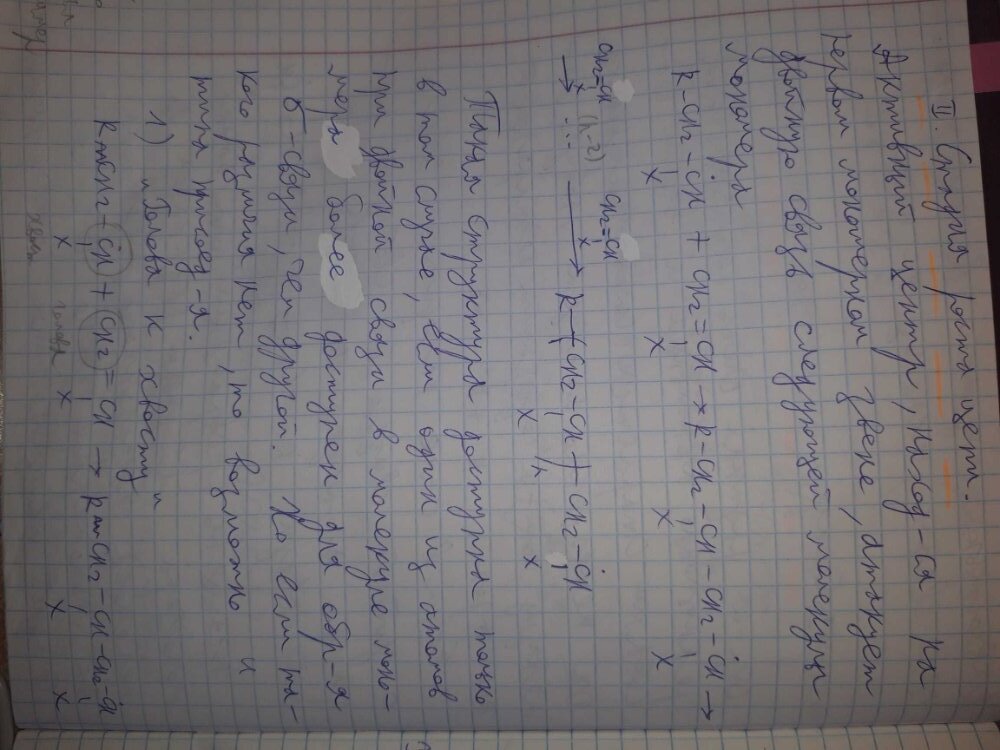 II. Стадия роста цепи.
Активный центр, наход-ся на
первом мономерном звене, атакует
двойную связь следующей молекулы
мономера
R-CH₂-ĊH + CH₂=CH → R-CH₂-CH-CH₂-ĊH →
X X X X
CH₂=CH (n-2) CH₂=CH
→ ... → R-(CH₂-CH)ₙ-CH₂-ĊH
X X X X
Такая структура доступна только
в том случае, если один из атомов
при двойной связи в молекуле моно-
мера более доступен для обр-я
σ-связи, чем другой. Но если та-
кого различия нет, то возможно и
типа присоед-я.
1) „Голова к хвосту"
R~CH₂-ĊH + CH₂=CH → R~CH₂-CH-CH₂-ĊH
X X X X
хвост голова